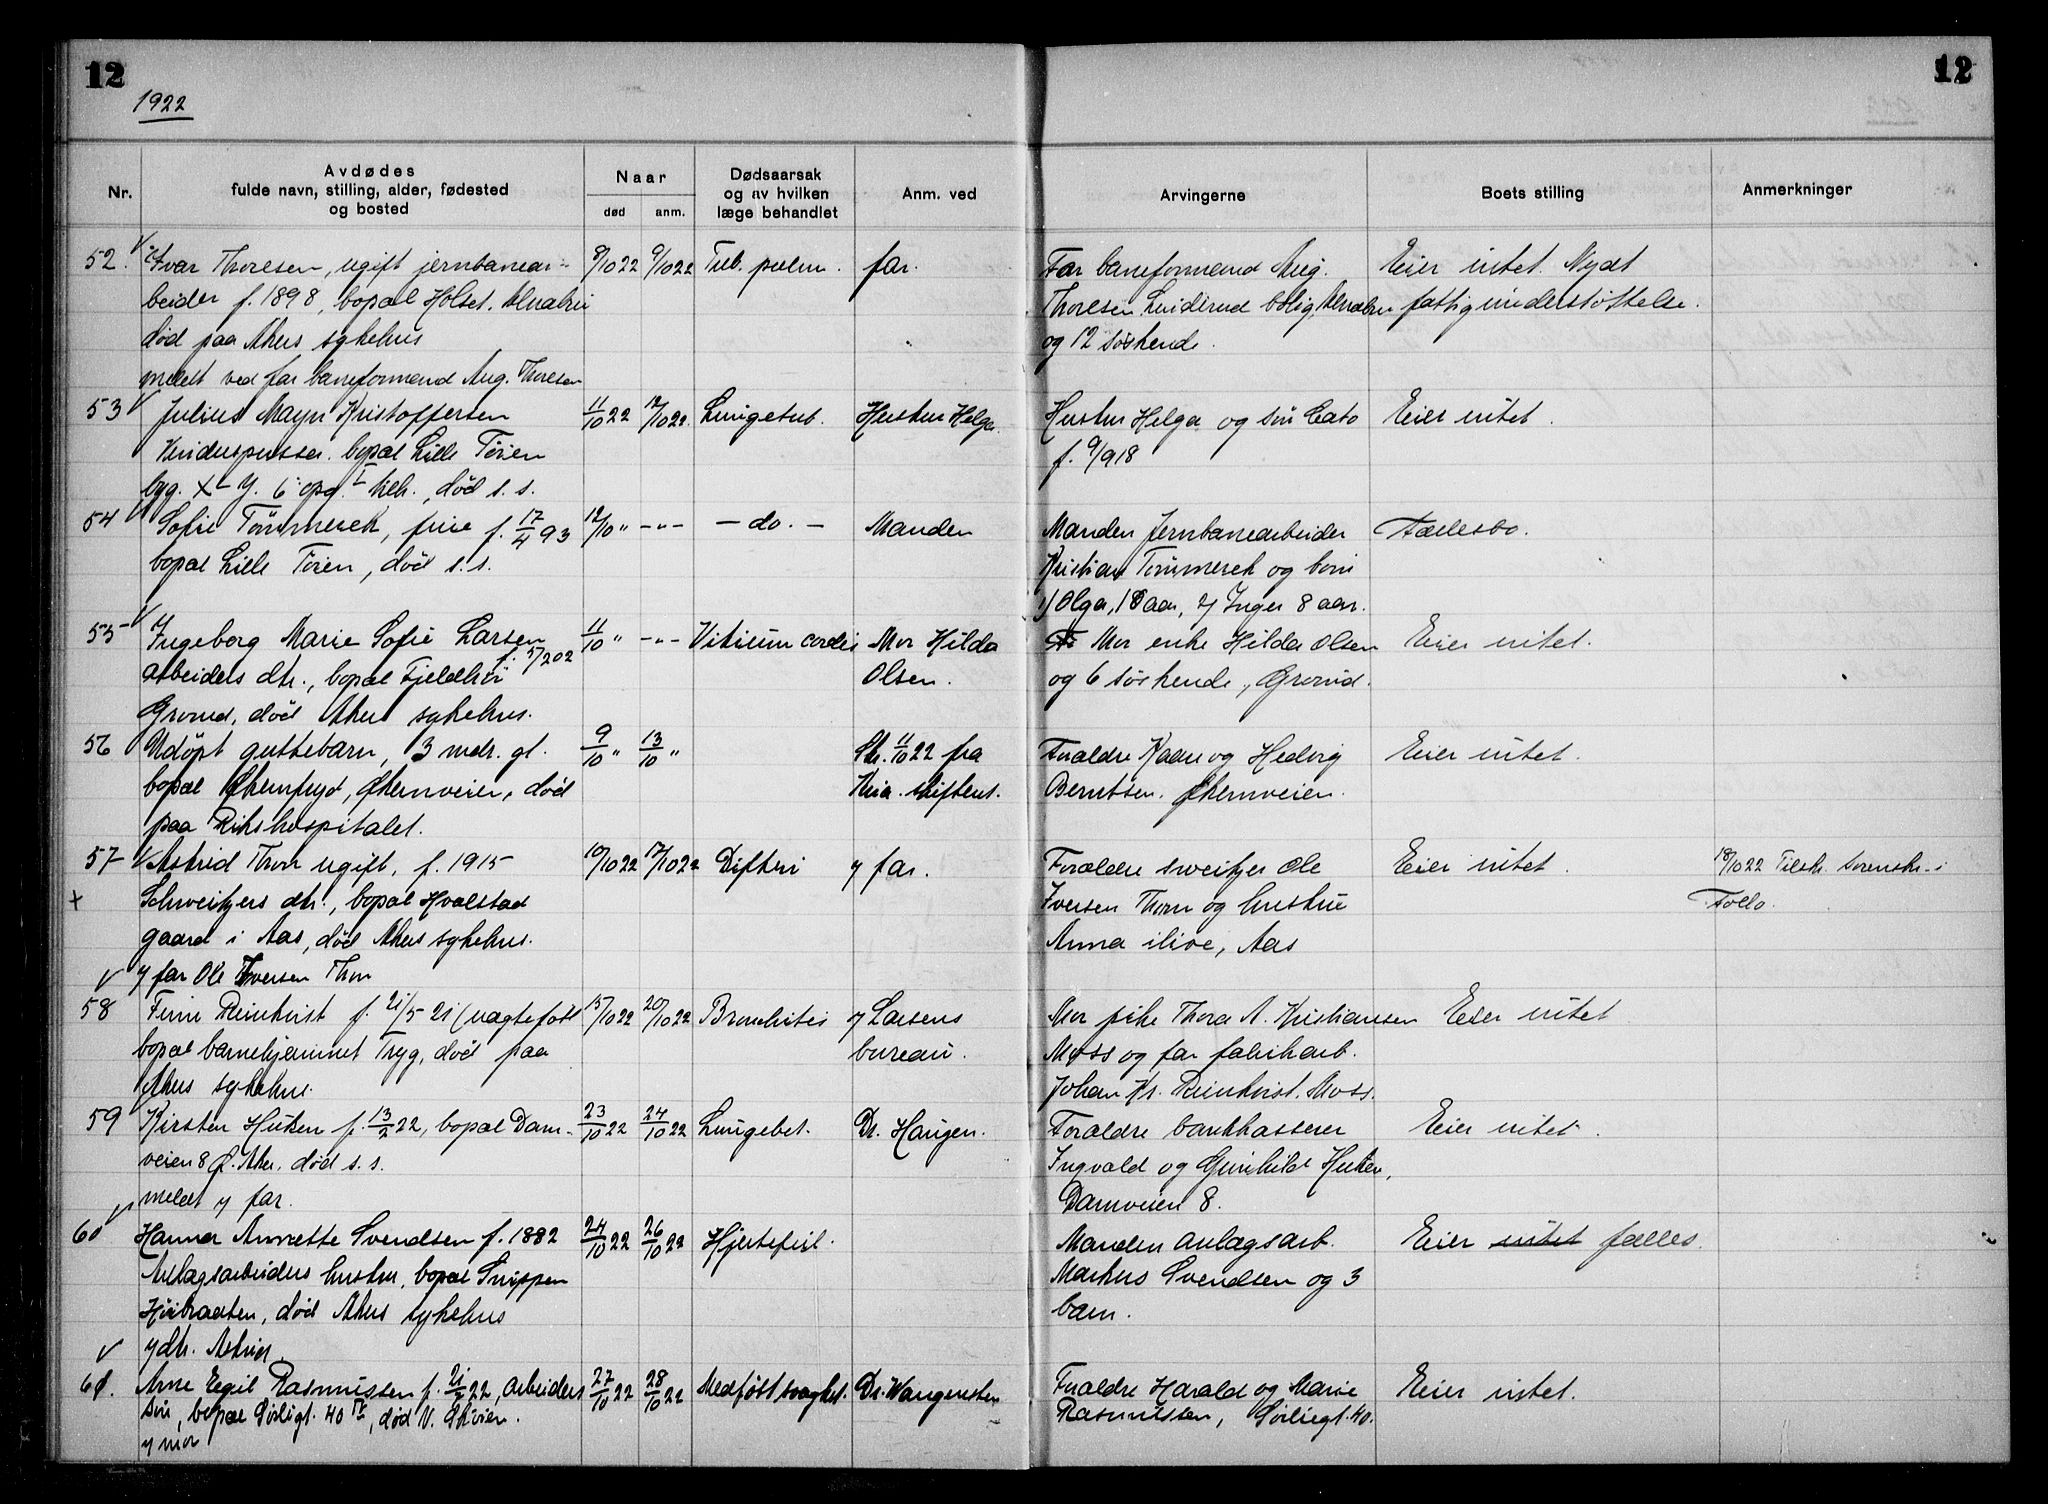 12
12
1922
Nr.
Avdødes
fulde navn, stilling, alder, fødested
og bosted
Naar
død
anm.
Dødsaarsak
og av hvilken
læge behandlet
Anm. ved
Arvingerne
Boets stilling
Anmerkninger
52. Ivar Thoresen, ugift jernbanear- 8/10 22 9/10 22 Tub. pulm. far. Far baneformand Aug. Eier intet. Nydt
beider f. 1898, bopæl Holset. Alnabru Thoresen, Linderud bolig, Alnabru fattigunderstøttelse.
död paa Akers sykehus og 12 søskende.
meldt ved far baneformand Aug. Thoresen
53 Julius Mayn Kristoffersen 11/10 22 12/10 22. Lungetub. Hustru Helga. Hustru Helga og sön Cato Eier intet.
Vinduspusser. bopæl Lille Töien f. 9/9 18
byg. X-Y. 6 opg. I kah., död s. s.
54 Sofie Tömmerek, frue f. 17/4 93 12/10 " -"- - do. - Manden Manden Jernbanearbeider Fællesbo.
bopæl Lille Töien, död s. s. Kristian Tömmerek og barn
1) Olga, 18 aar, 2) Inger 8 aar.
55 Ingeborg Marie Sofie Larsen 11/10 " -"- Vitium cordis Mor Hilda Mor enke Hilda Olsen Eier intet.
f. 5/2 02
arbeiders dtr., bopæl Fjeldhöi Olsen. og 6 söskende, Grorud.
Grorud, död Akers sykehus.
56 Udöpt guttebarn, 3 mdr. gl. 9/10 " 13/10 " Skr. 11/10 22 fra Forældre Kaare og Hedvig Eier intet.
bopæl Økernfryd, Økernveien, död Kria. skifteret. Berntsen. Økernveien.
paa Rikshospitalet.
57 Astrid Thon ugift, f. 1915 10/10 22 17/10 22 Difteri v/ far. Forældre sveitzer Ole Eier intet. 18/10 22 Tilskr. sorenskr. i
+ Schweitzers dtr., bopæl Kvalstad Iversen Thon og hustru Follo.
gaard i Aas, död Akers sykehus. Anna ilive, Aas
v/ far Ole Iversen Thon
58 Finn Reinkvist f. 21/5 21 (uagtefödt 15/10 22 20/10 22 Bronchitis v/ Larsens Mor pike Thora A. Kristiansen Eier intet
bopæl barnehjemmet Tryg, död paa bureau. Moss og far fabrikarb.
Akers sykehus. Johan Kr. Reinkvist. Moss.
59 Kirsten Huken f. 13/2 22, bopæl Dam- 23/10 22 24/10 22 Lungebet. Dr. Haugen. Forældre bankkasserer Eier intet.
veien 8 Ø. Aker, död s. s. Ingvald og Gunhild Huken,
meldt v/ far. Damveien 8.
60 Hanna Annette Svendsen f. 1882 24/10 22 26/10 22 Hjertefeil. Manden anlægsarb. Eier intet fælles.
Anlægsarbeiders hustru, bopæl Snippen Markus Svendsen og 3
Höibraaten, död Akers sykehus barn.
v/ dtr. Astrid.
61. Arne Egil Rasmussen f. 22, arbeiders 27/10 22 28/10 22 Medfödt svaghet. Dr. Wangensten Forældre Harald og Marie Eier intet.
sön, bopæl Sörligt. 40 IV, död V. Skoien. Rasmussen, Sörligt. 40.
v/ mor